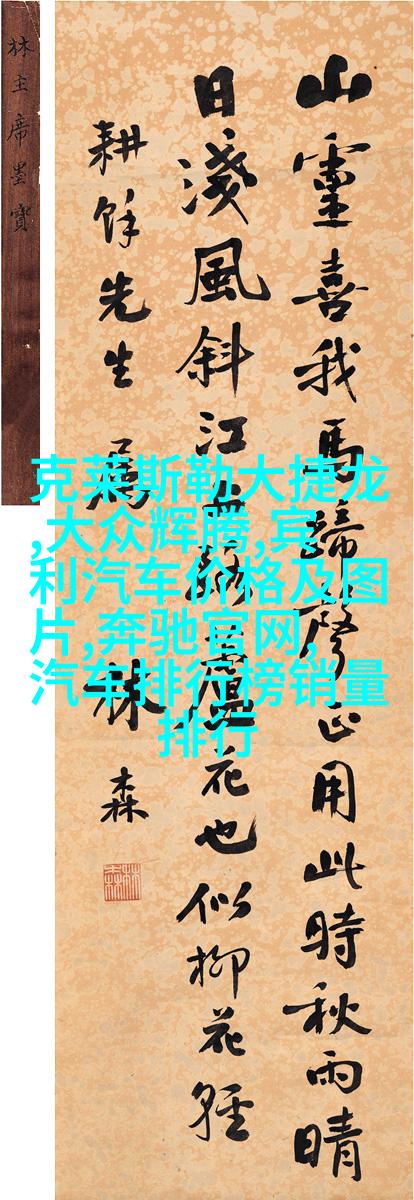 山靈喜我馬蹄聲正用此時秋雨晴
日淺風斜江路蘆花也似柳花輕
耕餘先生 屬 林森
林主席墨寶
克莱斯勒大捷龙
,大众辉腾,宾
利汽车价格及图
片,奔驰官网,
汽车排行榜销量
排行